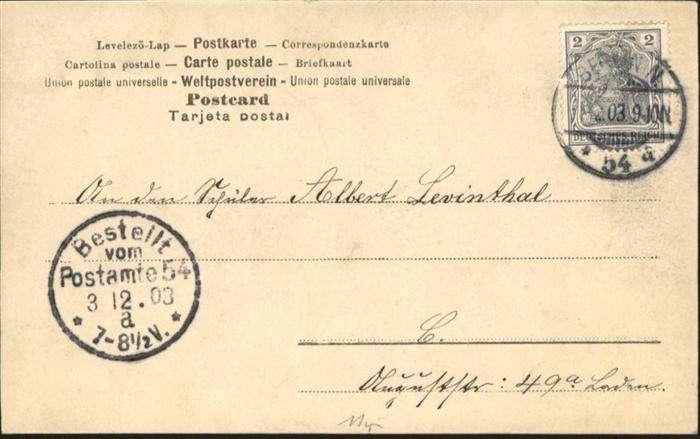 Levelező-Lap — Postkarte — Correspondenzkarte
Cartolina postale — Carte postale — Briefkaart
Union postale universelle - Weltpostverein - Union postale universale
Postcard
Tarjeta postal
2 2
DEUTSCHES REICH
BERLIN N.
.03.9-10N.
* 54 a.
An den Schüler Albert Levinthal
Bestellt
vom
Postamte 54
3 12.03
a
* 7-8½V. *
B.
Auguststr: 49a Laden.